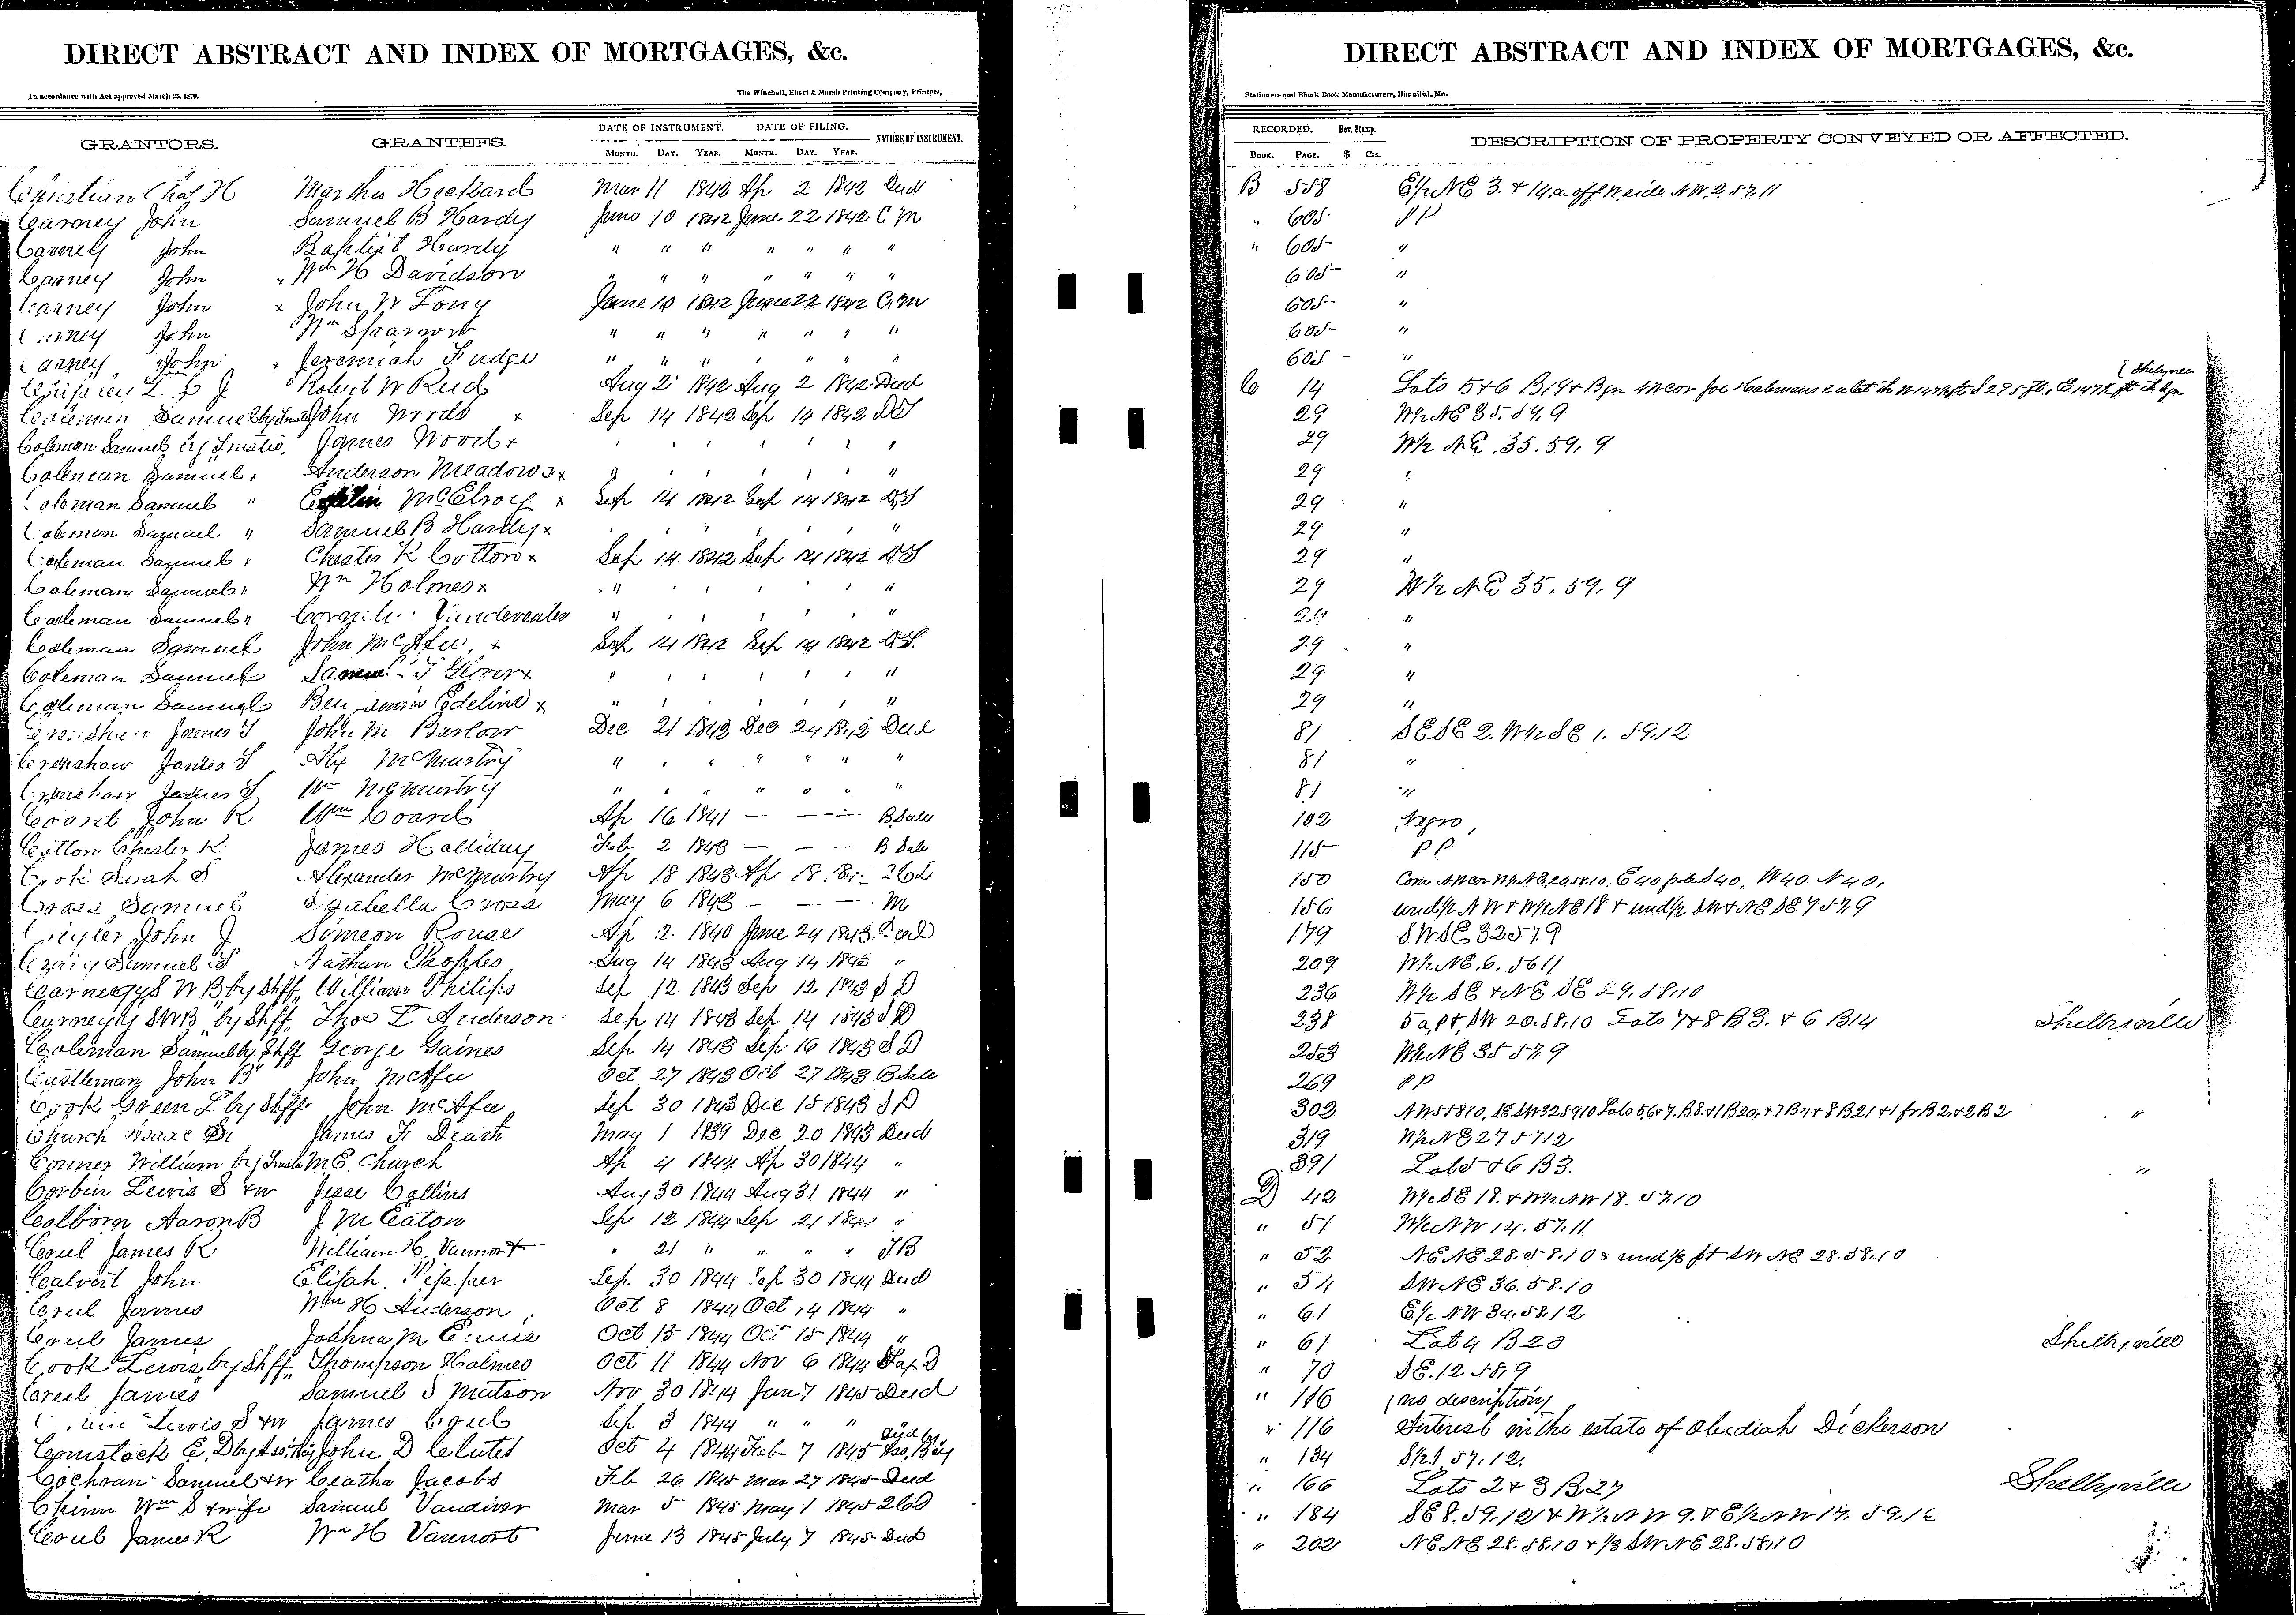 DIRECT ABSTRACT AND INDEX OF MORTGAGES, &c.
In accordance with Act approved March 25, 1870.
The Winchell, Ebert & Marsh Printing Company, Printers,
GRANTORS. GRANTEES. DATE OF INSTRUMENT. DATE OF FILING. NATURE OF INSTRUMENT.
MONTH. DAY. YEAR. MONTH. DAY. YEAR.
Christian Chas H Martha Heckard Mar 11 1842 Ap 2 1842 Deed
Carney John Samuel B Hardy June 10 1842 June 22 1842 C M
Carney John Baptist Hardy " " " " " " "
Carney John Wm H Davidson " " " " " " "
Carney John John W Long June 10 1842 June 22 1842 C. M
Carney John Wm " " " " " " "
Carney John Jeremiah Fudge " " " " " " "
Robert W Aug 2 1842 Aug 2 1842 Deed
Coleman Samuel by John Woods x Sep 14 1842 Sep 14 1842 DT
Coleman Samuel by Trustee, James Wood x " " " " " " "
Coleman Samuel " Anderson Meadows x " " " " " " "
Coleman Samuel " McElroy x Sep 14 1842 Sep 14 1842 DT
Coleman Samuel " Samuel B Hardy x " " " " " " "
Coleman Samuel " Chester K Cotton x Sep 14 1842 Sep 14 1842 DT
Coleman Samuel " Wm Holmes x " " " " " " "
Coleman Samuel " Vandeventer " " " " " " "
Coleman Samuel John McAfee x Sep 14 1842 Sep 14 1842 DT.
Coleman Samuel Glover x " " " " " " "
Coleman Samuel Benjamin Edeline x " " " " " " "
Crenshaw James S John M Barlow Dec 21 1842 Dec 24 1842 Deed
Crenshaw James S Alex McMurtry " " " " " " "
Crenshaw James S Wm McMurtry " " " " " " "
Coard John R Wm Coard Ap 16 1841 — — — B Sale
Cotton Chester K. James Halliday Feb 2 1843 — — — B Sale
Cook S Alexander McMurtry Ap 18 1843 Ap 18
Cross Samuel Izabella Cross May 6 1843 — — — M
Crigler John J Simeon Rouse Ap 2 1840 June 24 1843 Deed
Craig Samuel S Nathan Peoples Aug 14 1843 Aug 14 1843 "
W B by Shff William Philips Sep 12 1843 Sep 12 1843 S D
by Shff Thos L Anderson Sep 14 1843 Sep 14 1843 S D
Coleman Samuel by Shff George Gaines Sep 14 1843 Sep 16 1843 S D
John B John McAfee Oct 27 1843 Oct 27 1843 B Sale
Cook Green L by Shff John McAfee Sep 30 1843 Dec 15 1843 S D
Church Isaac Sr James F. May 1 1839 Dec 20 1843 Deed
William by M E. Church Ap 4 1844 Ap 30 1844 "
Corbin Lewis S & w Jesse Collins Aug 30 1844 Aug 31 1844 "
Colborn Aaron B J. M Eaton Sep 12 1844 Sep 21 1844 "
Coul James R William H. Vannort " 21 " " " " TB
Calvert John Elijah Sep 30 1844 Sep 30 1844 Deed
Creel James Wm H Anderson Oct 8 1844 Oct 14 1844 "
Creel James Joshua M Ennis Oct 15 1844 Oct 15 1844 "
Cook Lewis by Shff Thompson Holmes Oct 11 1844 Nov 6 1844 Tax D
Creel James Samuel S Matson Nov 30 1844 Jan 7 1845 Deed
Lewis S & w James Coul Sep 3 1844 " " "
Comstock E. D by John D Clutes Oct 4 1844 Feb 7 1845
Cochran Samuel & w Jacobs Feb 26 1845 Mar 27 1845 Deed
Chinn Wm S & wife Samuel Vandiver Mar 5 1845 May 1 1845
Coul James R Wm H Vannort June 13 1845 July 7 1845 Deed
DIRECT ABSTRACT AND INDEX OF MORTGAGES, &c.
Stationers and Blank Book Manufacturers, Hannibal, Mo.
RECORDED. Rev. Stamp. DESCRIPTION OF PROPERTY CONVEYED OR AFFECTED.
BOOK. PAGE. $ Cts.
B 558 E½ NE 3. & 14. a. off W side NW. 2. 57. 11
" 605 PP
" 605 "
605 "
605 "
605 "
605 "
C 14 Lots 5 & 6 B 19 & Bgn
29 W½ NE 35. 59. 9
29 W½ NE. 35. 59. 9
29 "
29 "
29 "
29 "
29 W½ NE 35. 59. 9
29 "
29 "
29 "
29 "
81 SE SE 2. W½ SE 1. 59. 12
81 "
81 "
102 Negro,
115 PP
150 E 40 p S 40, W 40 N 40,
156 und½ NW & W½ NE 18 & und½ SW & NE SE 7 57. 9
179 SW SE 32 57. 9
209 W½ NE. 6. 56 11
236 W½ SE & NE SE 29. 58. 10
238 5 a, pt, SW 20. 58. 10 Lots 7 & 8 B 3. & 6 B 14 Shelbyville
253 W½ NE 35 57. 9
269 PP
302 "
319 W½ NE 27 57 12
391 Lots 5 & 6 B 3. "
D 42 W½ SE 18. & W½ NW 18. 57. 10
" 51 W½ NW 14. 57. 11
" 52 NE NE 28. 58. 10 & und⅓ pt SW NE 28. 58. 10
" 54 SW NE 36. 58. 10
" 61 E½ NW 34. 58. 12
" 61 Lot 4 B 20 Shelbyville
" 70 SE. 12 58. 9
" 116 (no description)
" 116 Interest in the estate of Obediah Dickerson
" 134 57. 12.
" 166 Lots 2 & 3 B. 27 Shelbyville
" 184 SE 8. 59. 12 & W½ NW 9. & E½ NW 17. 59. 12
" 202 NE NE 28. 58. 10 & ⅓ SW NE 28. 58. 10